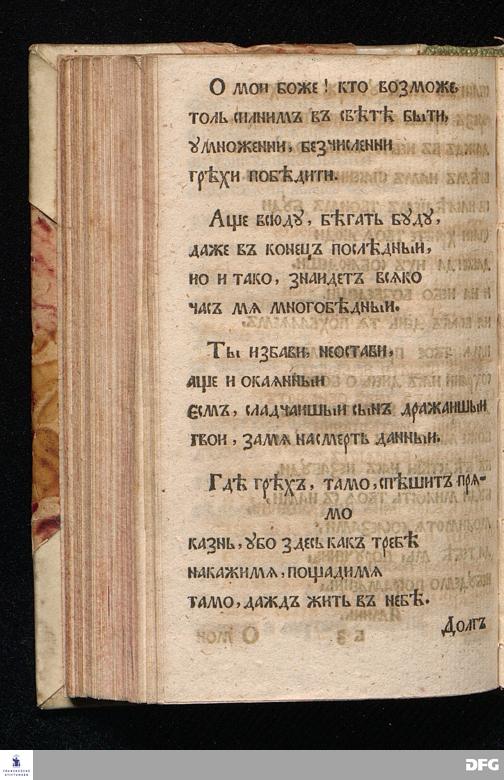 О мои боже! кто возможе
толь силнимъ въ свѣтѣ быти,
умноженни, безчисленни
грѣхи побѣдити.
Аще всюду, бѣгать буду,
даже въ конецъ послѣдный,
но и тако, знаидетъ всяко
часъ мѧ многобѣдныи.
Ты избави, неостави,
аще и окаянныи
есмъ, сладчаишыи сынъ дражаишыи
твои, замѧ насмерть данныи.
Гдѣ грѣхъ, тамо, спѣшитъ пря-
мо
казнь, убо здесь какъ требѣ
накажимѧ, пощадимѧ
тамо, даждъ жить въ небѣ.
Долгъ
FRANCKESCHE
STIFTUNGEN
DFG